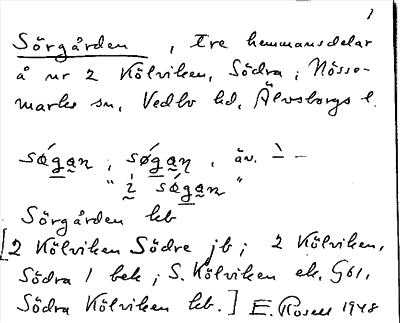 1
Sörgården , tre hemmansdelar
å nr 2 Kölviken, Södra ; Nösse-
marks sn, Vedbo hd, Älvsborgs l.
søgan , søgan , äv. ` –
" i søgan "
Sörgården kb
[2 Kölviken Södre jb ; 2 Kölviken,
Södra 1 bek ; S. Kölviken ek, G61,
Södra Kölviken kb.] E. Rosell 1948